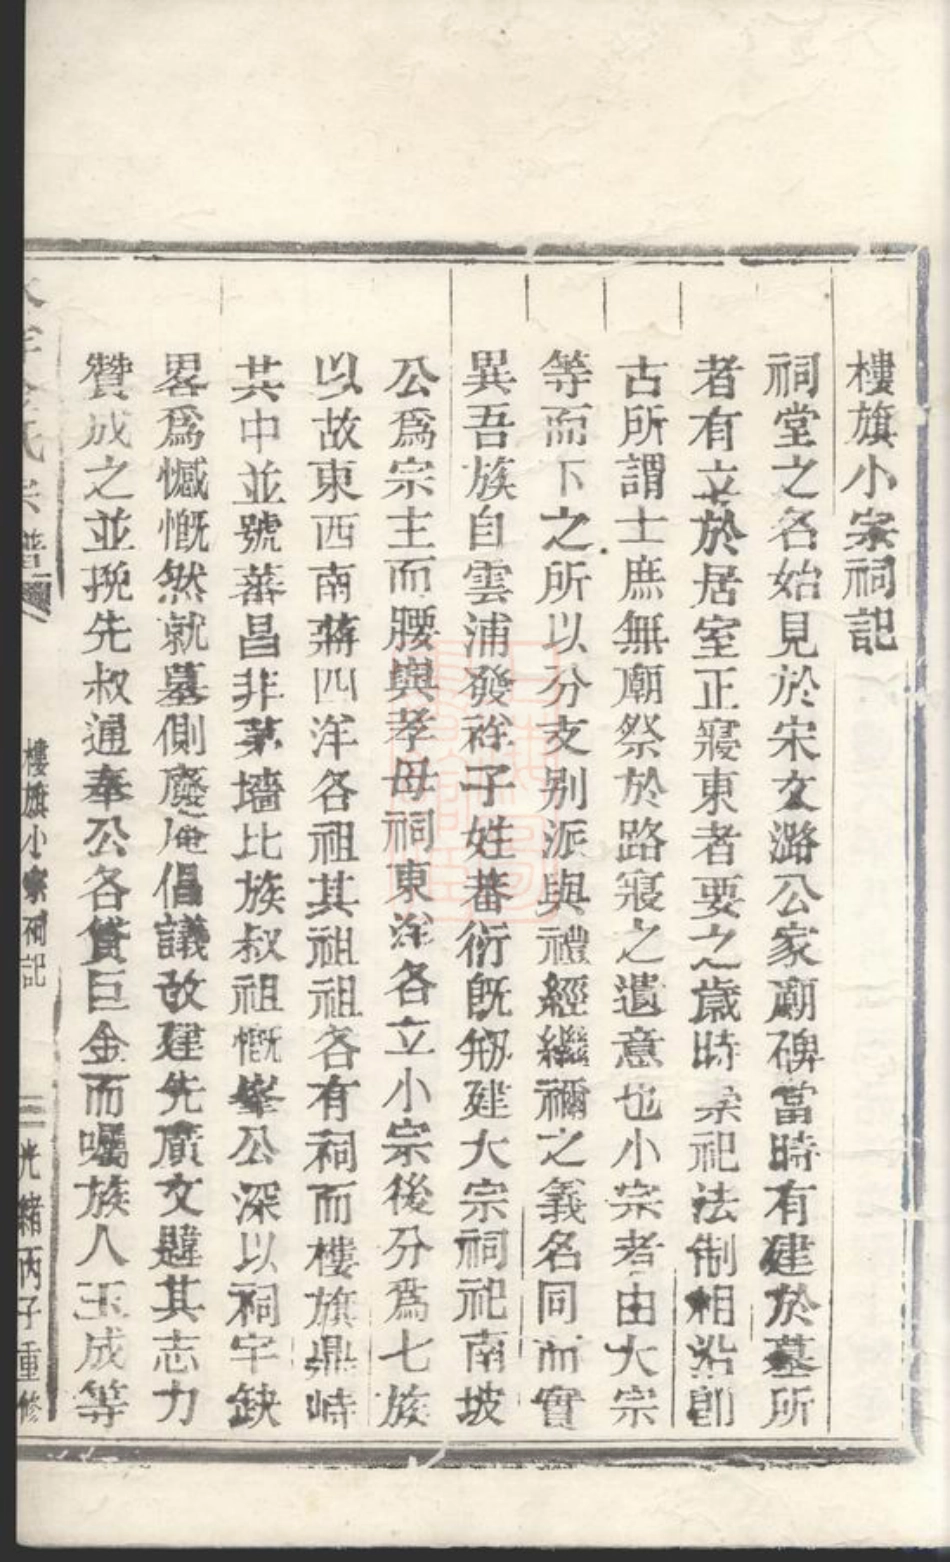 樓旗小宗祠記
祠堂之名始見於宋文潞公家廟碑當時有建於墓所
者有立於居室正寢東者要之歲時祭祀法制相沿卽
古所謂士庶無廟祭於路寢之遺意也小宗者由大宗
等而下之所以分支别派與禮經繼禰之義名同而實
異吾族自雲浦發祥子姓蕃衍旣剏建大宗祠祀南坡
公爲宗主而腰與孝母祠東洋各立小宗後分爲七族
以故東西南蔣四洋各祖其祖祖各有祠而樓旗鼎峙
其中並號蕃昌非茅墻比族叔祖慨峯公深以祠宇缺
畧爲憾慨然就墓側廢庵倡議改建先廣文韙其志力
贊成之並挽先叔通奉公各貸巨金而囑族人玉成等
氏宗譜
樓旗小宗祠記
二
光緒丙子重修